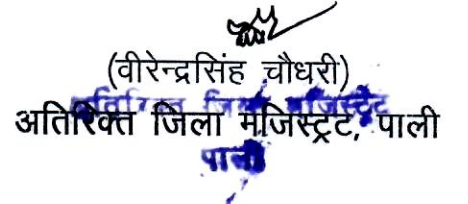 (वीरेन्द्रसिंह चौधरी)
अतिरिक्त जिला मजिस्ट्रेट, पाली
अतिरिक्त जिला मजिस्ट्रेट
पाली